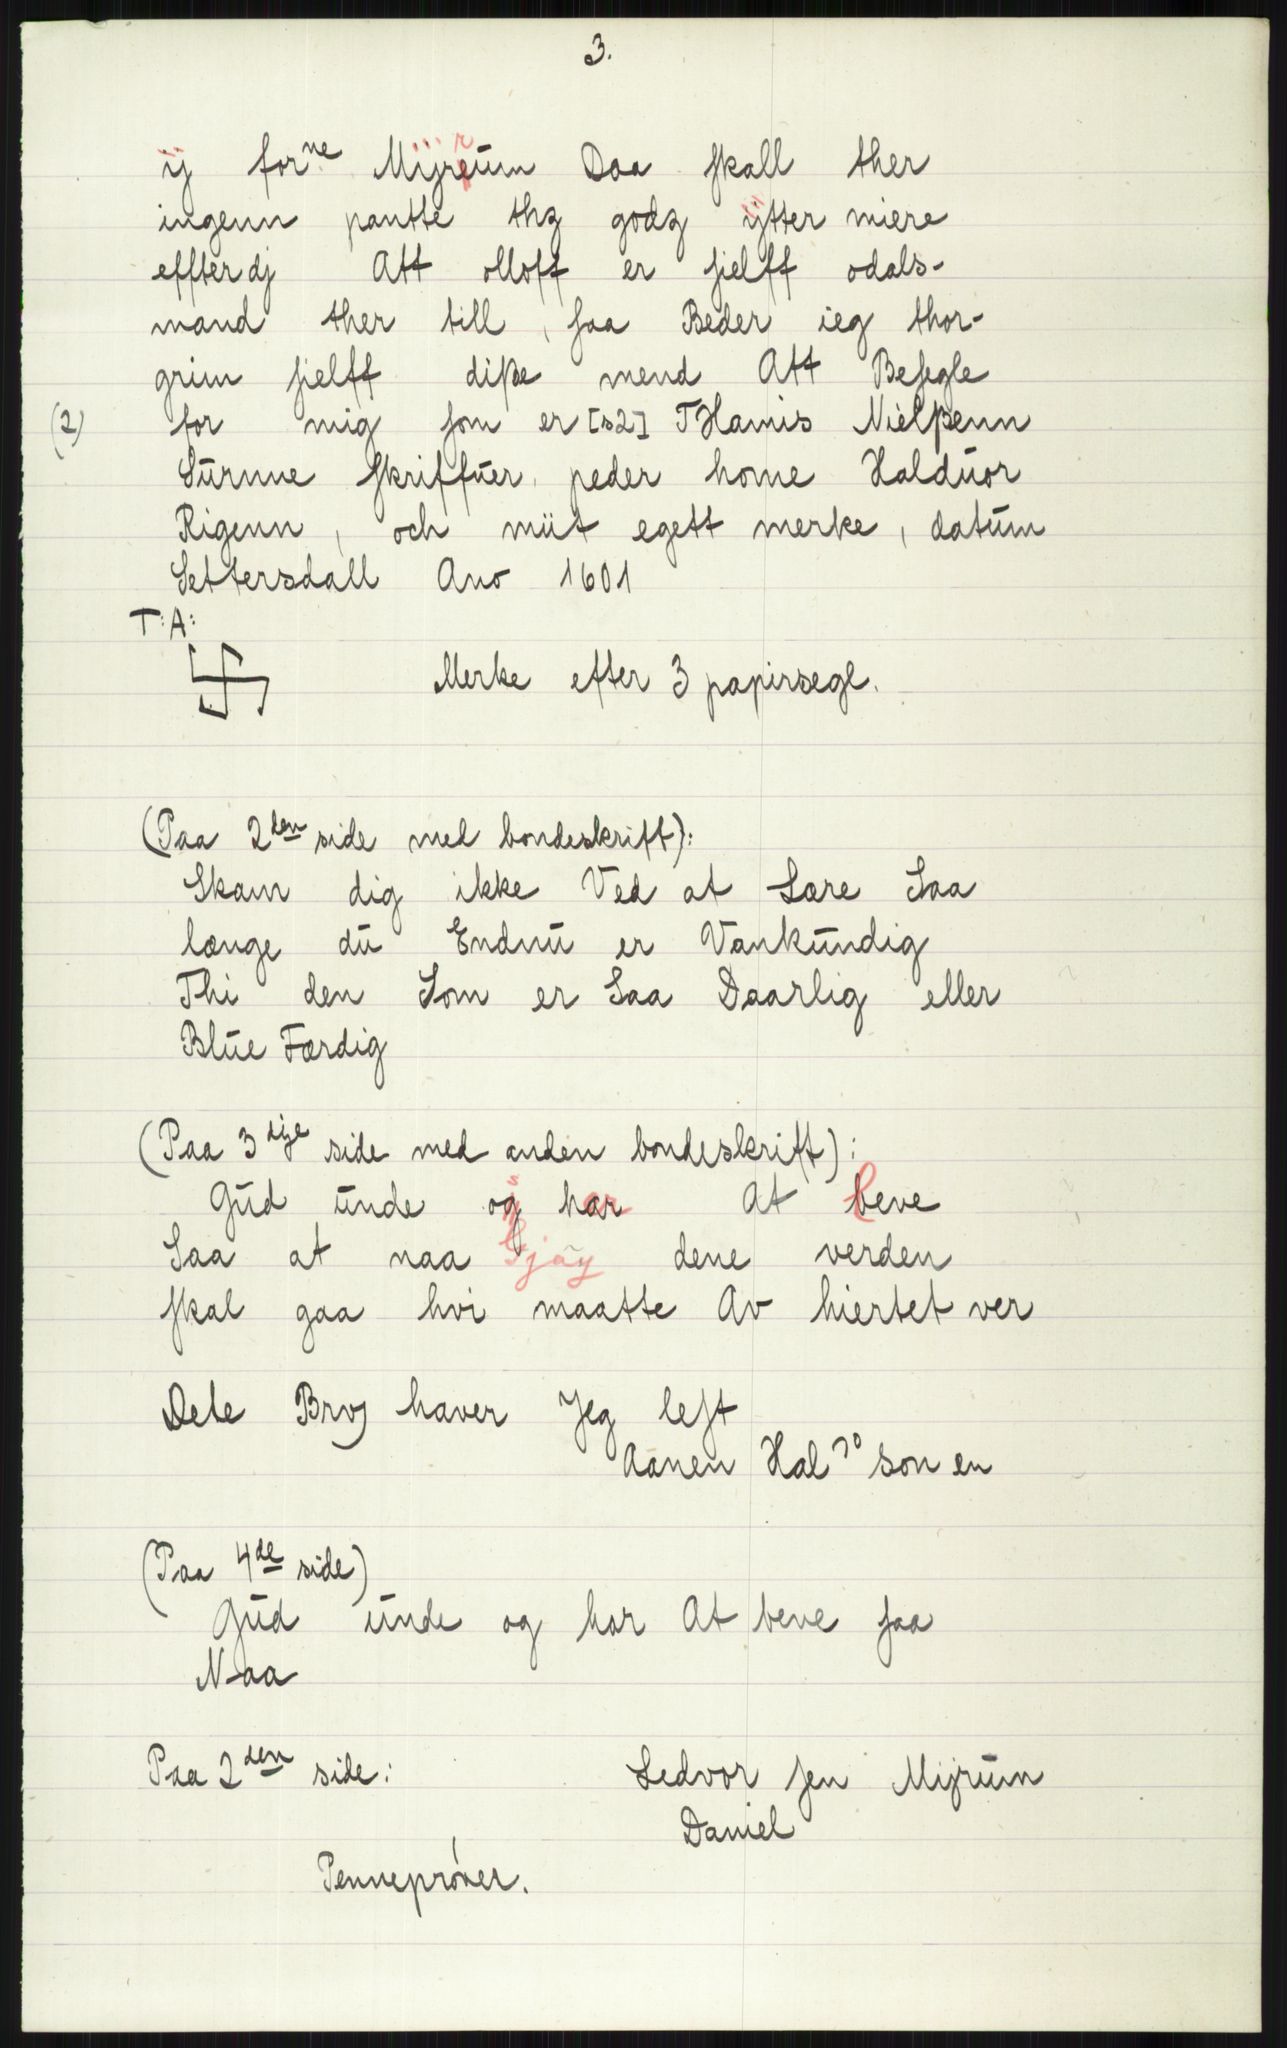 3.
ij forne Mijrum Daa skall ther
ingenn pantte thz godz ÿtter miere
effterdj Att olloff er sielff odals-
mand ther till, saa Beder ieg thor-
grim sielff diße mend Att Besegle
(2) for mig som er [s2] THamis Nielßenn
Surnne skriffuer, peder home Halduor
Rigenn, och miit egett merke, datum
Settersdall Ano 1601
T: A:
Merke efter 3 papirsegl.
(Paa 2den side med bondeskrift):
Skam dig ikke Ved at Lære Saa
længe du Endnu er Vankundig
Thi den Som er Saa Daarlig eller
Blue Færdig
(Paa 3dje side med anden bondeskrift):
Gud unde og har At beve
Saa at naa dene verden
skal gaa hvi maatte Av hiertet ver
Dete Brvj haver Jeg lest
Aanen Hal so son en
(Paa 4de side)
Gud unde og har At beve saa
Naa
Paa 2den side: Ledvor sen Mijrum
Daniel
Penneprøver.